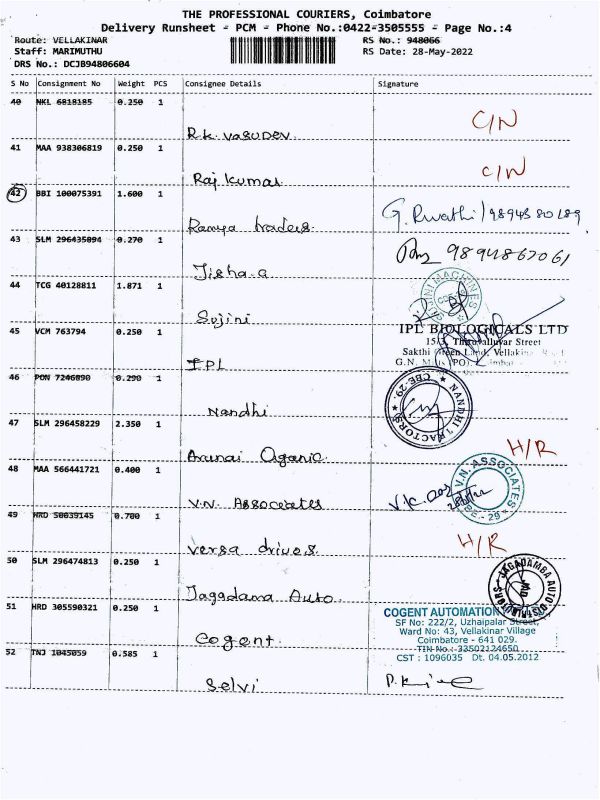 THE PROFESSIONAL COURIERS, Coimbatore
Delivery Runsheet - PCM - Phone No.:0422-3505555 - Page No.:4
Route: VELLAKINAR RS No.: 948066
Staff: MARIMUTHU RS Date: 28-May-2022
DRS No.: DCJB94806604
S No Consignment No Weight PCS Consignee Details Signature
40 NKL 6818185 0.250 1
R.K. Vasudev C/N
41 MAA 938306819 0.250 1
Raj kumar C/N
42 BBI 100075391 1.600 1
Ramya traders G. Rvathi/9894580189
43 SLM 296435894 0.270 1
Jisha.a 9894867061
44 TCG 40128811 1.871 1
Sojini
SAJINI MACHINES
45 VCM 763794 0.250 1
IPL
IPL BIOLOGICALS LTD
15/3, Thiruvalluvar Street
Sakthi Green Land, Vellakinar
G.N. Mills (PO),
46 PON 7246890 0.290 1
Nandhi
NANDHI TRACTORS CBE-29
47 SLM 296458229 2.350 1
Arunai Oganic H/R
48 MAA 566441721 0.400 1
V.N. Assocetates
V.N. ASSOCIATES CBE-29
49 HRD 50039145 0.700 1
Versa drives H/R
50 SLM 296474813 0.250 1
Jagadama Auto
JAGADAMBA AUTO DISTRIBUTORS
51 HRD 305590321 0.250 1
Cogent
COGENT AUTOMATION
SF No: 222/2, Uzhaipalar Street,
Ward No: 43, Vellakinar Village
Coimbatore - 641 029.
TIN No.: 33502124650
CST : 1096035 Dt. 04.05.2012
52 TNJ 1045059 0.585 1
Selvi